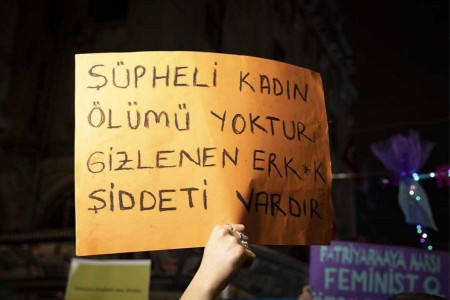 ŞÜPHELİ KADIN
ÖLÜMÜ YOKTUR
GİZLENEN ERK*K
ŞİDDETİ VARDIR
PATRİYARKAYA KARŞI
FEMİNİST